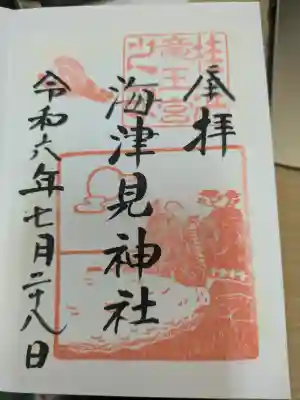 奉拝
海津見神社
令和六年七月二十八日